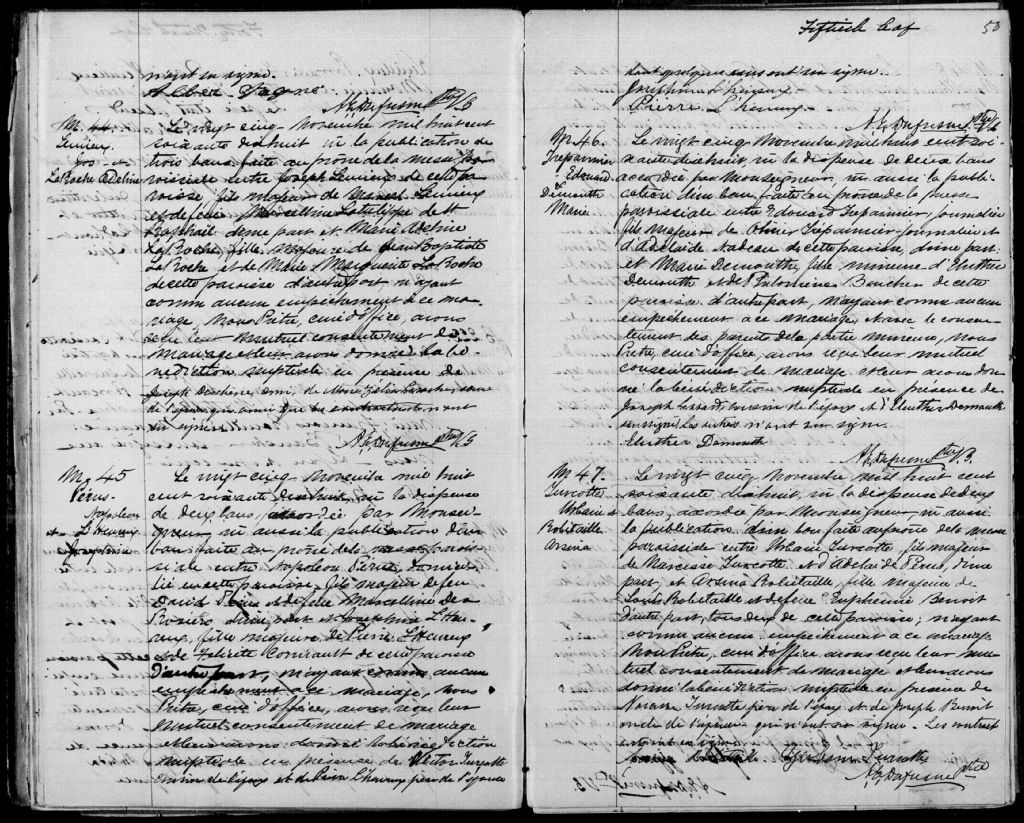 n'ont su signé.
Alber Gagné
A. E. Dufresne Ptre
M. 44
Lemieux
Jos. et
LaRoche Adeline
Le vingt cinq Novembre mil huit cent
soixante dixhuit vu la publication de
trois bans faite au prône de la messe pa
roissiale entre Joseph Lemieux de cette pa
roisse, fils majeur de Lemieux
et de feue Marcelline de St
Raphaël d'une part et Marie Adeline
LaRoche fille majeure de Jean Baptiste
LaRoche et de Marie Marguerite LaRoche
de cette paroisse d'autre part, n'ayant
connu aucun empêchement à ce ma-
riage, Nous Prêtre, curé d'office, avons
reçu leur mutuel consentement de
mariage et leur avons donné la bé-
nédiction nuptiale en presence de
Joseph ami, de Marie
de l'épouse qui ainsi que les contractants n'ont
su signer
A. E. Dufresne Ptre
M. 45
Perus
Napoleon
et L'Heureux
Josephine
Le vingt cinq Novembre mil huit
cent soixante dixhuit, vu la dispense
de deux bans, accordée par Monsei-
gneur, vu aussi la publication d'un
ban faite au prône de la messe parois-
siale entre Napoleon Perus, domici-
lié en cette paroisse fils majeur de feu
David Perus et de feue Marcelline Des
Rosiers d'une part et Josephine L'Heu-
reux, fille majeure de Pierre L'Heureux
et de Felicité de cette paroisse
d'autre part, n'ayant connu aucun
empêchement à ce mariage, nous
Prêtre, curé d'office, avons reçu leur
mutuel consentement de mariage
et leur avons donné la bénédiction
nuptiale en presence de Victor Turcotte
cousin de l'époux et de Pierre L'heureux père de l'épouse
Fiftieth leaf
50
dont quelques uns ont su signer
Josephine L'heureux
Pierre L'heureux
A. E. Dufresne Ptre
M. 46.
Trepannier
Edouard
Demouthe
Marie
Le vingt cinq Novembre mil huit cent soi-
xante dixhuit, vu la dispense de deux bans
accordée par Monseigneur, vu aussi la publi-
cation d'un ban faite au prône de la messe
paroissiale entre Edouard Trepannier, journalier
fils majeur de Olivier Trepannier journalier et
d'Adelaide Nadeau de cette paroisse, d'une part
et Marie Demouthe, fille mineure d'Eluther
Demouthe et de Philomène Boucher de cette
paroisse d'autre part, n'ayant connu aucun
empêchement à ce mariage et avec le consen-
tement des parents de la partie mineure, nous
Prêtre, curé d'office, avons reçu leur mutuel
consentement de mariage et leur avons don-
né la bénédiction nuptiale en présence de
Joseph cousin de l'époux et d'Eluther Demouthe
soussigné. Les autres n'ont su signer
Eluther Demouth
A. E. Dufresne Ptre
M. 47.
Turcotte
Urbain et
Robitaille
Arsena
Le vingt cinq Novembre mil huit cent
soixante dixhuit, vu la dispense de deux
bans, accordée par Monseigneur, vu aussi
la publication d'un ban faite au prône de la messe
paroissiale entre Urbain Turcotte fils majeur
de Marcisse Turcotte et d'Adelaide Perus, d'une
part, et Arsena Robitaille, fille majeure de
Louis Robitaille et de feue Euphemie Benoit
d'autre part, tous deux de cette paroisse; n'ayant
connu aucun empêchement à ce mariage
Nous Prêtre, curé d'office avons reçu leur mu-
tuel consentement de mariage et leur avons
donné la bénédiction nuptiale en présence de
Narcisse Turcotte père de l'époux et de Joseph Benoit
oncle de l'épouse qui n'ont su signer. Les contract
Robitaille Turcotte
A. E. Dufresne Ptre